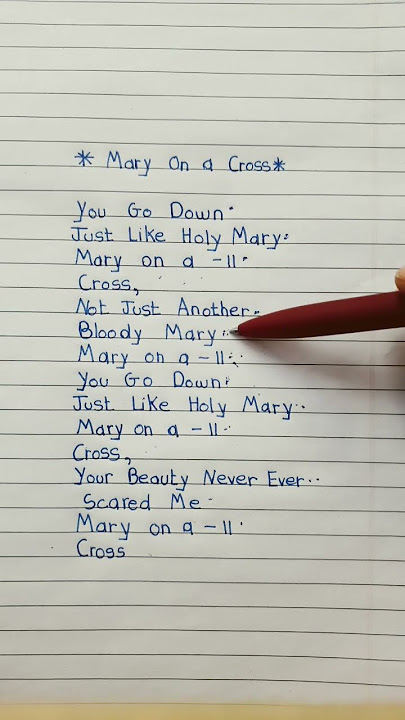 * Mary On a Cross*
You Go Down.
Just Like Holy Mary.
Mary on a -11.
Cross,
Not Just Another..
Bloody Mary..
Mary on a -11..
You Go Down.
Just Like Holy Mary..
Mary on a -11..
Cross,
Your Beauty Never Ever..
Scared Me -
Mary on a -11.
Cross